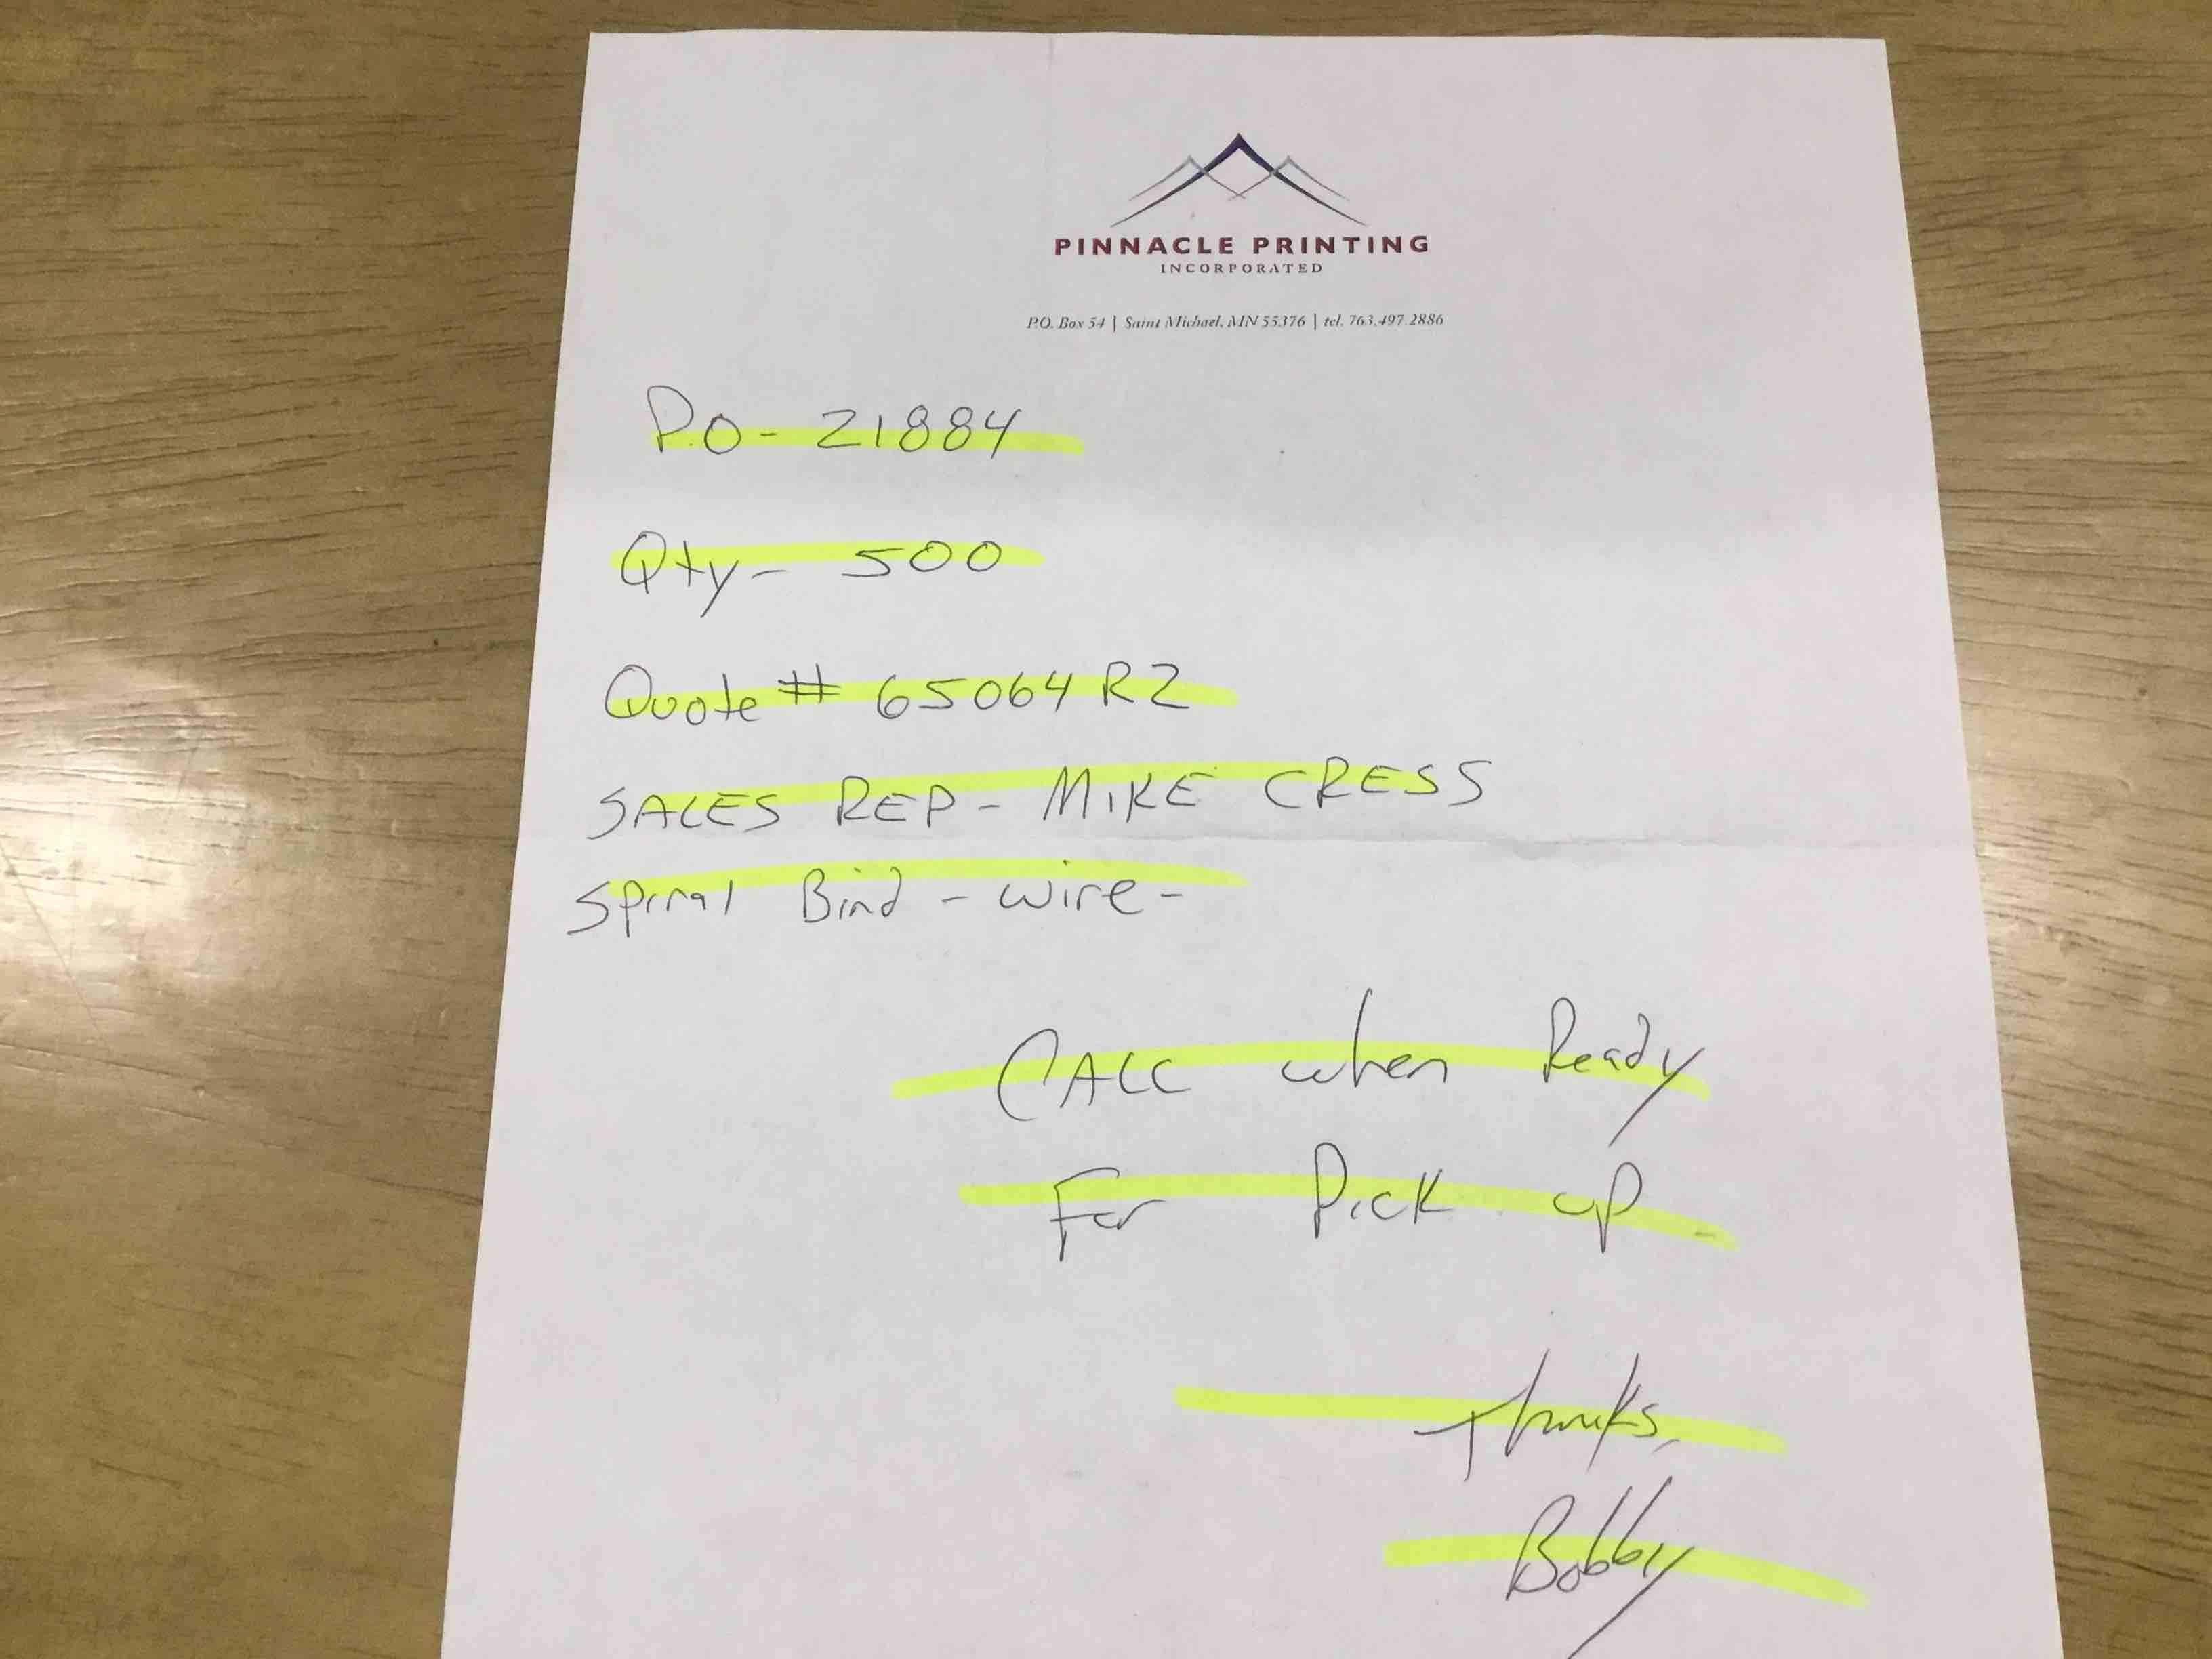 PINNACLE PRINTING
INCORPORATED
P.O. Box 54 | Saint Michael, MN 55376 | tel. 763.497.2886
P.O- 21884
Qty- 500
Quote # 65064 R2
SALES REP- MIKE CRESS
Spiral Bind - wire -
CALL when Ready
For Pick up
Thanks,
Bobby